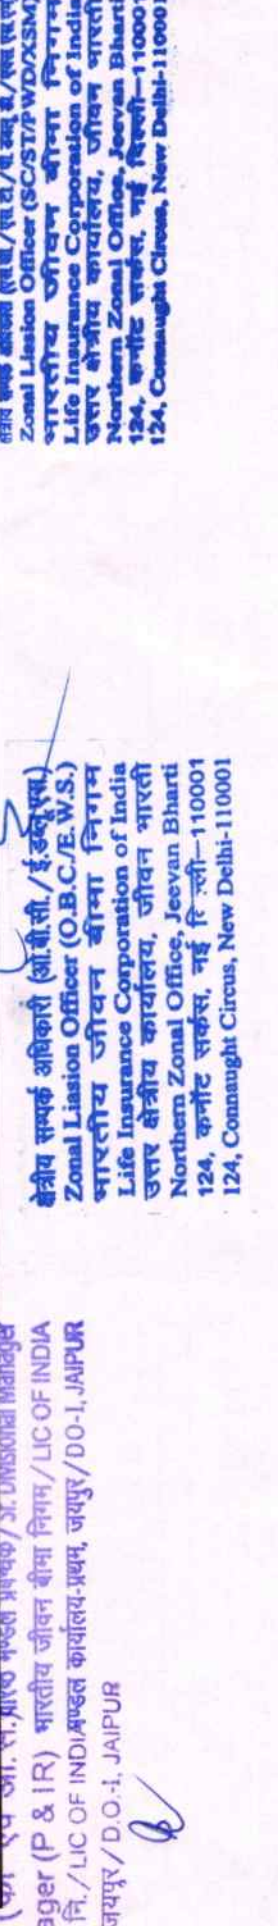 Sr. Divisional Manager
ager (P & IR) भारतीय जीवन बीमा निगम/LIC OF INDIA
नि./LIC OF INDIA मण्डल कार्यालय-प्रथम, जयपुर/DO-I, JAIPUR
जयपुर/D.O.-I, JAIPUR
क्षेत्रीय सम्पर्क अधिकारी (ओ.बी.सी./ई.डब्लू.एस.)
Zonal Liasion Officer (O.B.C./E.W.S.)
भारतीय जीवन बीमा निगम
Life Insurance Corporation of India
उत्तर क्षेत्रीय कार्यालय, जीवन भारती
Northern Zonal Office, Jeevan Bharti
124, कनॉट सर्कस, नई दिल्ली–110001
124, Connaught Circus, New Delhi-110001
Zonal Liasion Officer (SC/ST/PWD/XSM)
भारतीय जीवन बीमा निगम
Life Insurance Corporation of India
उत्तर क्षेत्रीय कार्यालय, जीवन भारती
Northern Zonal Office, Jeevan Bharti
124, कनॉट सर्कस, नई दिल्ली–110001
124, Connaught Circus, New Delhi-110001